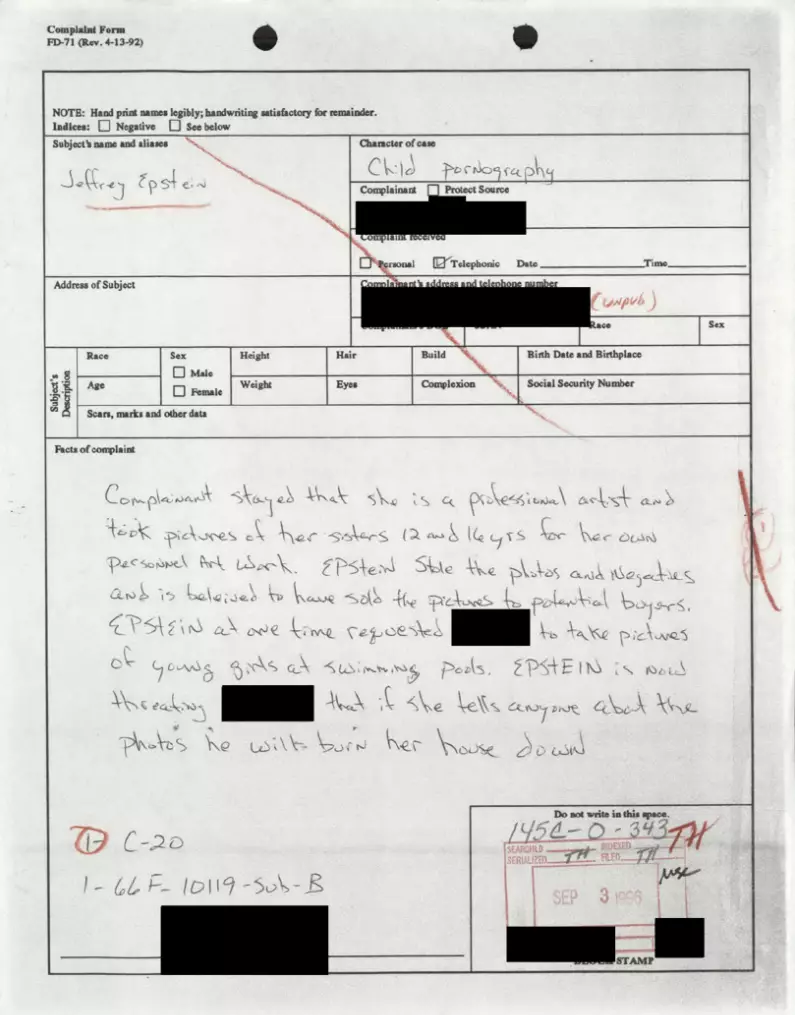 Complaint Form
FD-71 (Rev. 4-13-92)
NOTE: Hand print names legibly; handwriting satisfactory for remainder.
Indices: Negative See below
Subject's name and aliases
Jeffrey Epstein
Character of case
Child Pornography
Complainant Protect Source
Complaint received
Personal Telephonic Date Time
Address of Subject
Complainant's address and telephone number
(unpub)
Race Sex
Subject's Description
Race Sex Height Hair Build Birth Date and Birthplace
Male
Age Female Weight Eyes Complexion Social Security Number
Scars, marks and other data
Facts of complaint
Complainant stayed that she is a professional artist and
took pictures of her sisters 12 and 16 yrs for her own
personnel Art work. EPStein Stole the photos and Negatives
and is beleived to have sold the pictures to potential buyers.
EPStEiN at one time requested to take pictures
of young girls at swimming pools. EPSTEIN is now
threating that if she tells anyone about the
photos he will burn her house down
1- C-20
1-66F-10119-Sub-B
Do not write in this space.
145C-0-343 TH
SEARCHED INDEXED
SERIALIZED TH FILED TH
SEP 3 1996
STAMP